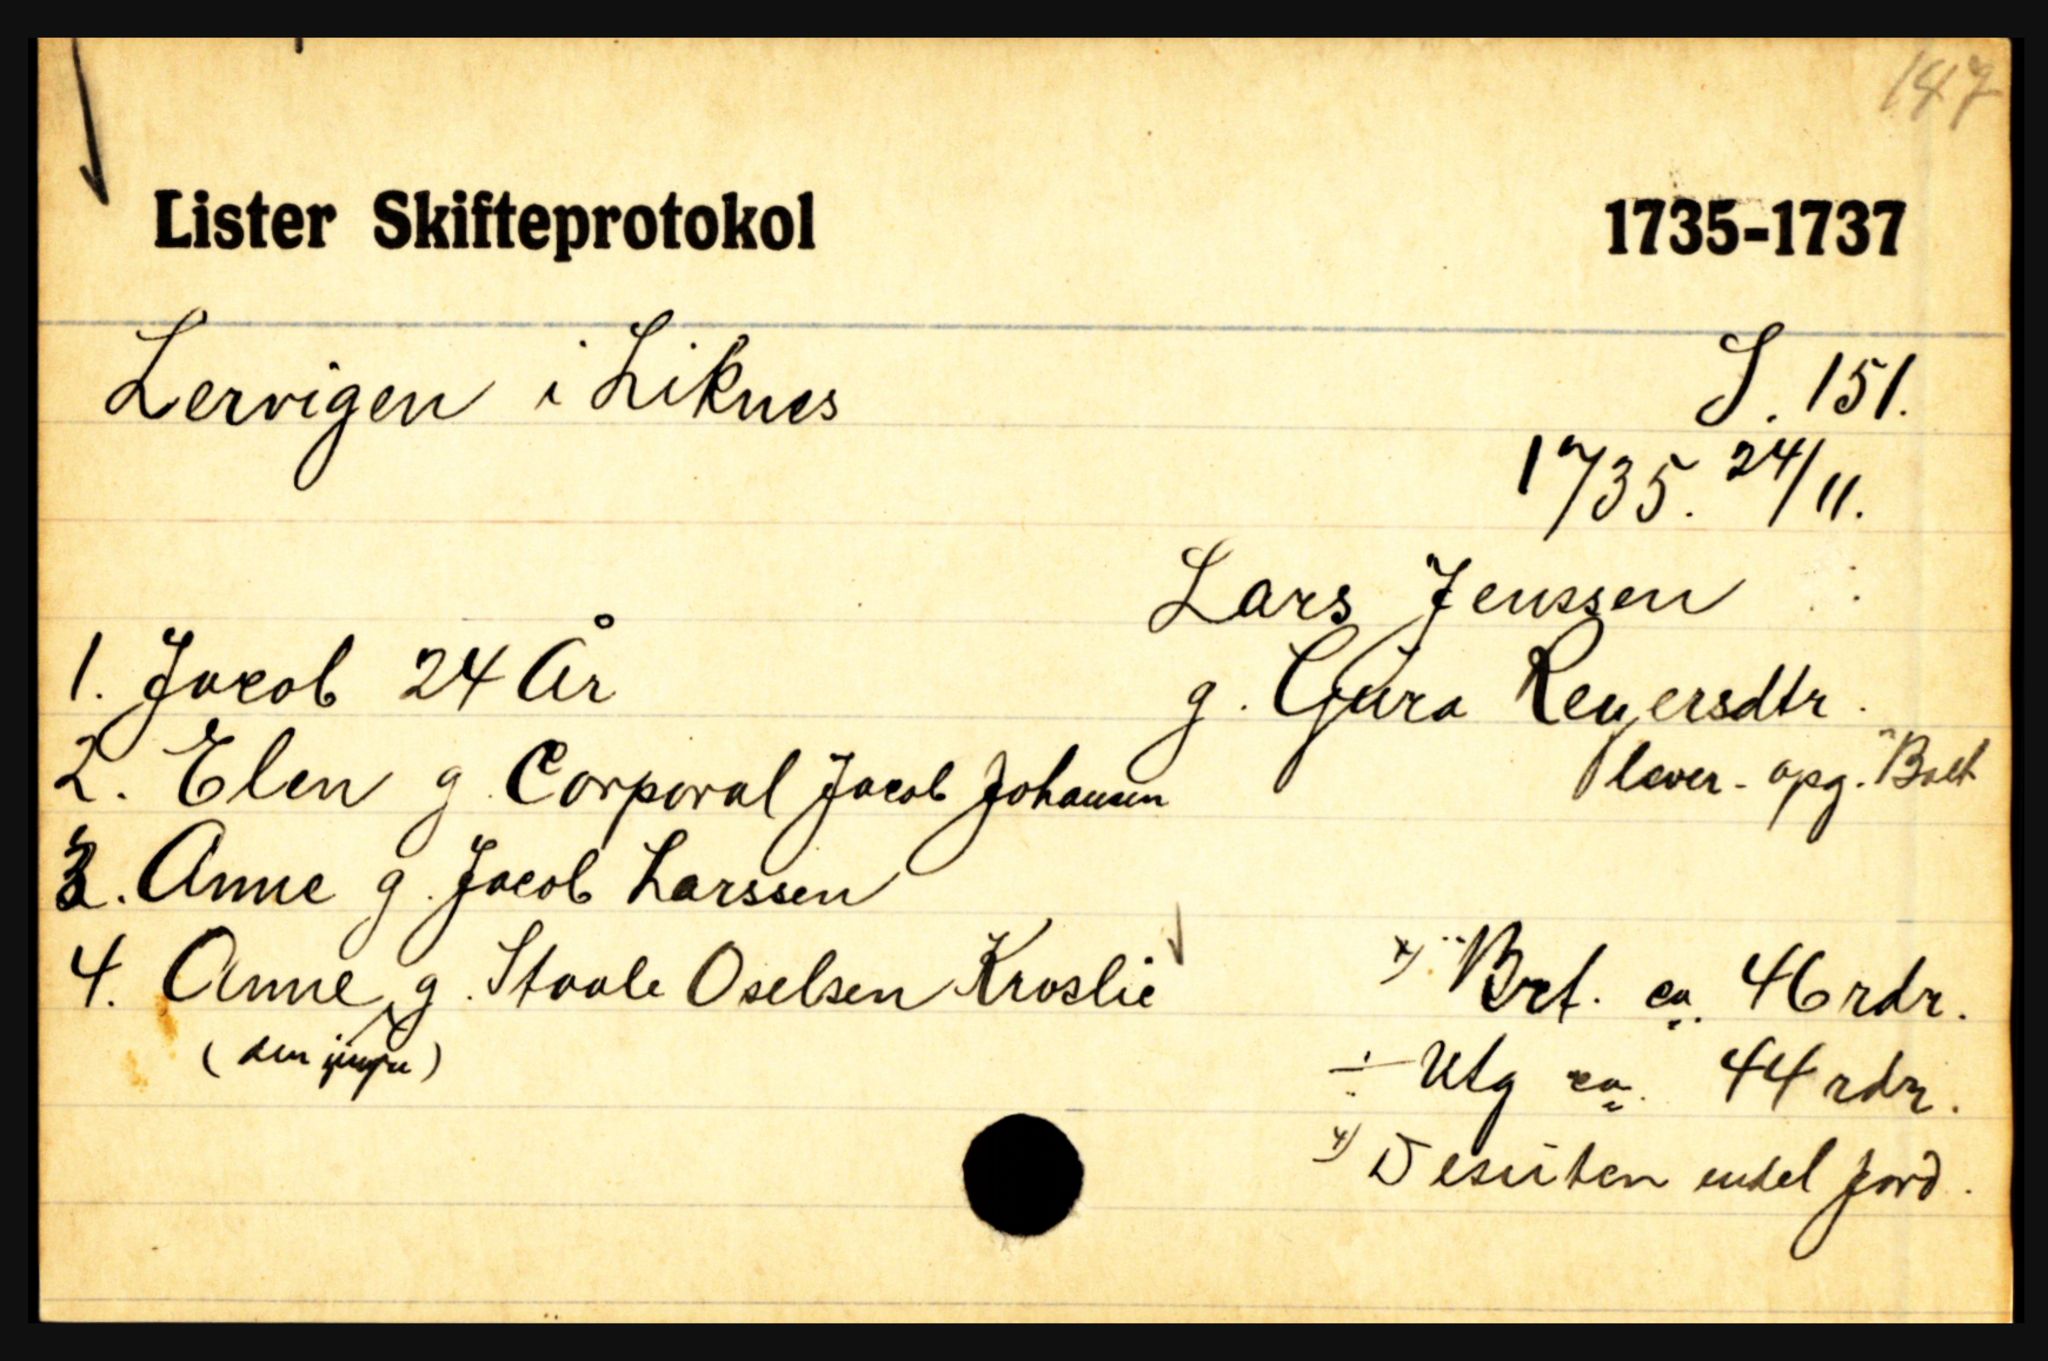 187
Lister Skifteprotokol 1735-1737
Lervigen i Liknes S. 151.
1735. 24/11.
Lars Jenssen
1. Jacob 24 År g. Gura Reyersdtr.
2. Elen g. Corporal Jacob Johansen lever - opg.
3. Anne g. Jacob Larssen
4. Anne g. Staale Oselsen Kroslie x) Brt. ca. 46 rdr.
(den yngre) ÷ Utg ca. 44 rdr.
x) Desuten endel jord.